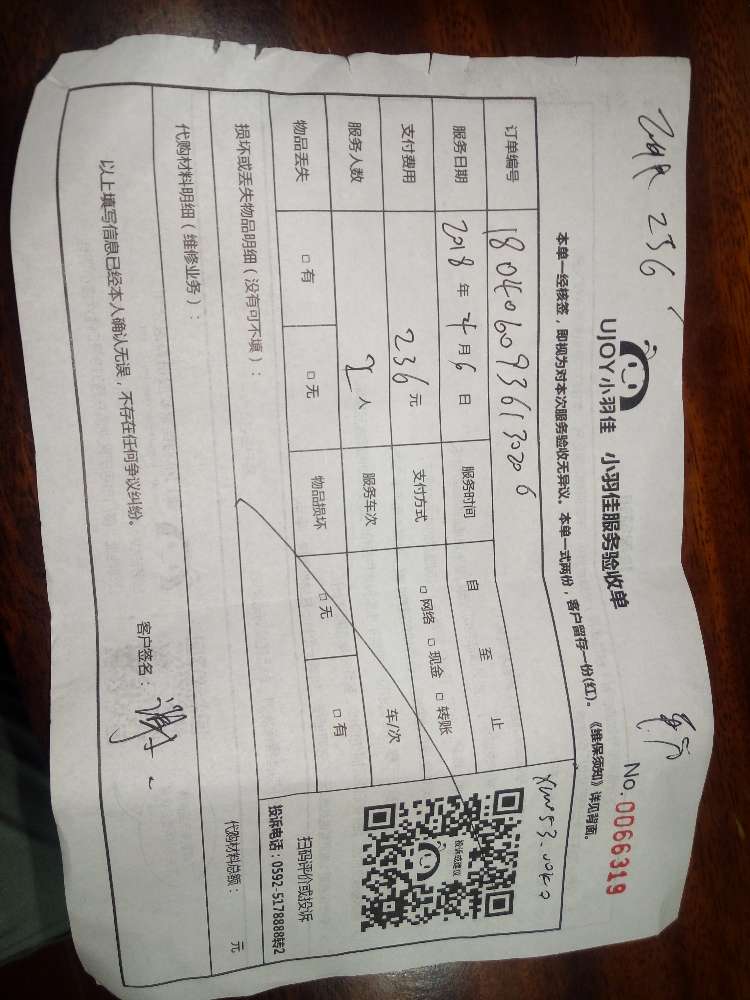 236
UJOY小羽佳 小羽佳服务验收单
No.0066319
本单一经核签，即视为对本次服务验收无异议。本单一式两份，客户留存一份(红)。《维保须知》详见背面。
订单编号 1804060936130206
服务日期 2018年4月6日 服务时间 自 至 止
支付费用 236元 支付方式 □网络 □现金 □转账
服务人数 2人 服务车次 车/次
物品丢失 □有 □无 物品损坏 □无 □有
损坏或丢失物品明细（没有可不填）：
投诉或建议
扫码评价或投诉
投诉电话：0592-5178888转2
代购材料明细（维修业务）： 代购材料总额： 元
以上填写信息已经本人确认无误，不存在任何争议纠纷。 客户签名：